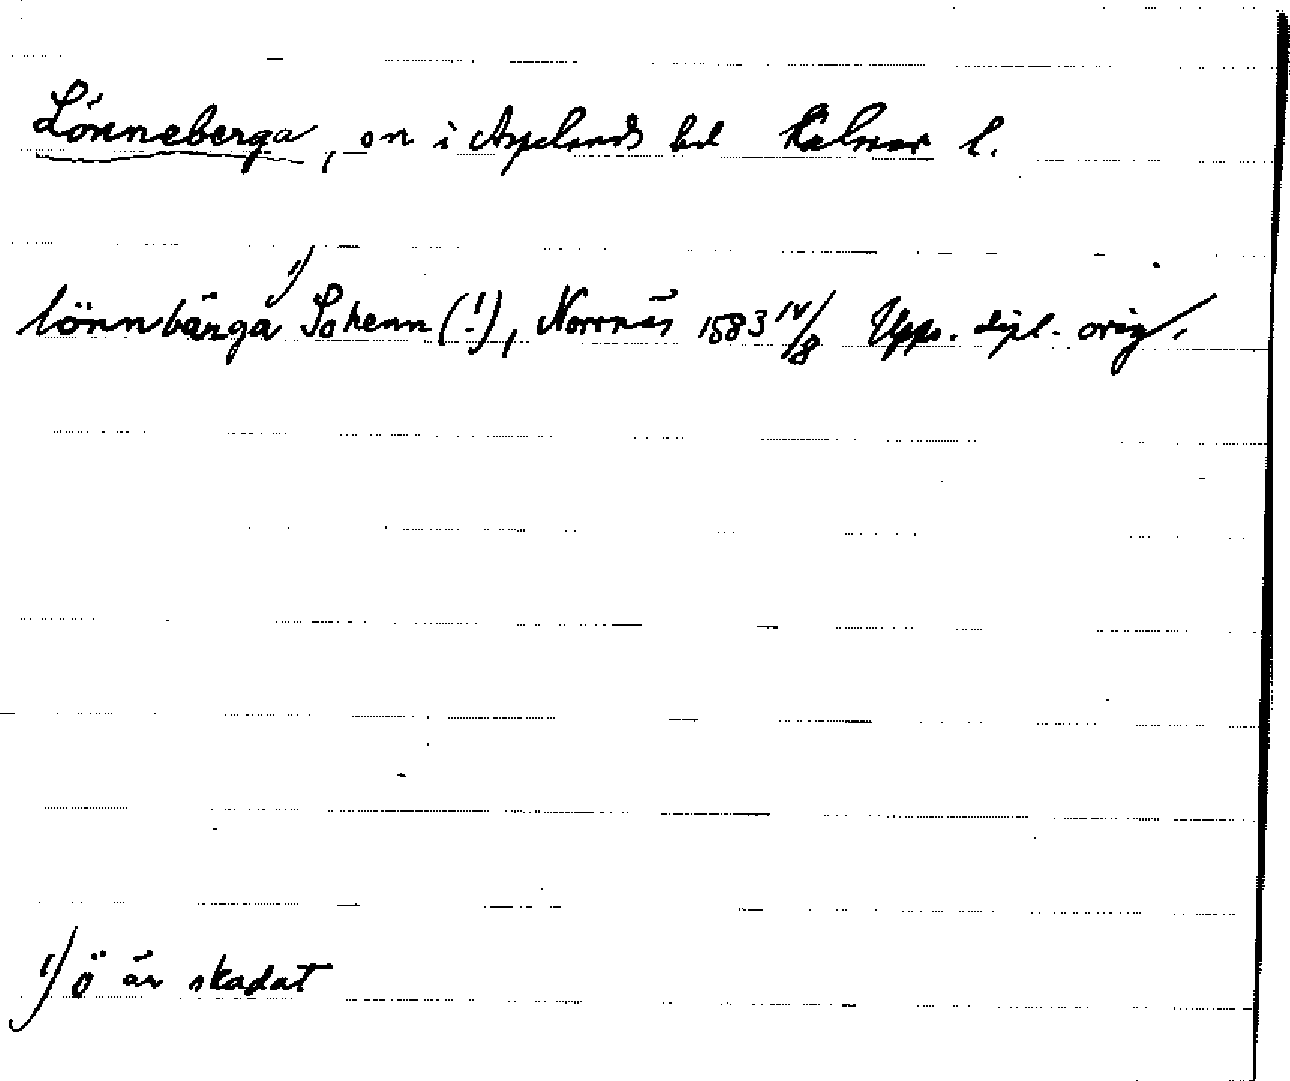 Lönneberga, sn i Aspelands hd Kalmar l.
lönnbärga 1) Sohenn (!), Norrnäs 1583 IV/8 Upps. dipl. orig.
1) ö är skadat